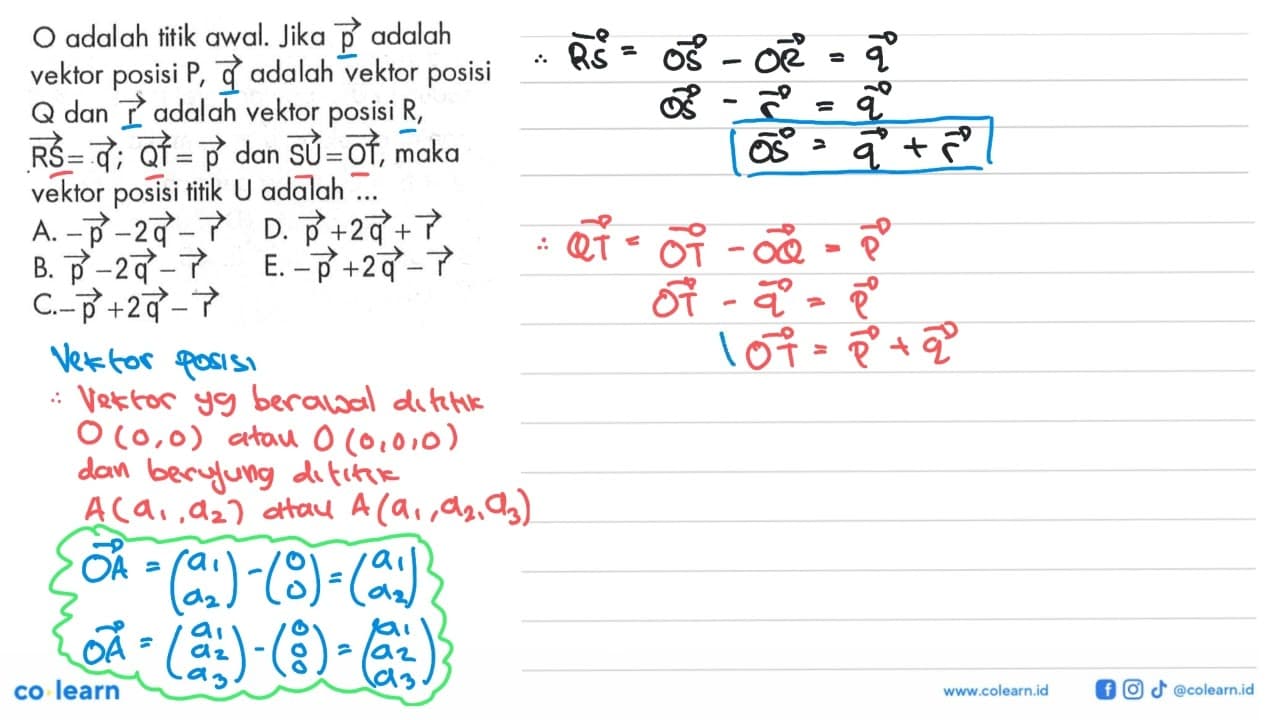 O adalah titik awal. Jika p⃗ adalah
vektor posisi P, q⃗ adalah vektor posisi
Q dan r⃗ adalah vektor posisi R,
RS⃗ = q⃗; QT⃗ = p⃗ dan SU⃗ = OT⃗, maka
vektor posisi titik U adalah ...
A. −p⃗ −2q⃗ − r⃗ D. p⃗ +2q⃗ + r⃗
B. p⃗ −2q⃗ − r⃗ E. −p⃗ +2q⃗ − r⃗
C.−p⃗ +2q⃗ − r⃗
Vektor posisi
∴ Vektor yg berawal dititik
O (0,0) atau O (0,0,0)
dan berujung dititik
A(a₁, a₂) atau A(a₁, a₂, a₃)
OA⃗ = (a₁ a₂) − (0 0) = (a₁ a₂)
OA⃗ = (a₁ a₂ a₃) − (0 0 0) = (a₁ a₂ a₃)
∴ RS⃗ = OS⃗ − OR⃗ = q⃗
OS⃗ − r⃗ = q⃗
OS⃗ = q⃗ + r⃗
∴ QT⃗ = OT⃗ − OQ⃗ = p⃗
OT⃗ − q⃗ = p⃗
OT⃗ = p⃗ + q⃗
co learn
www.colearn.id @colearn.id